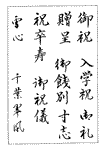 御祝 入学祝 御礼
贈呈 御餞別 寸志
祝卒寿 御祝儀
雪心 千葉翠風